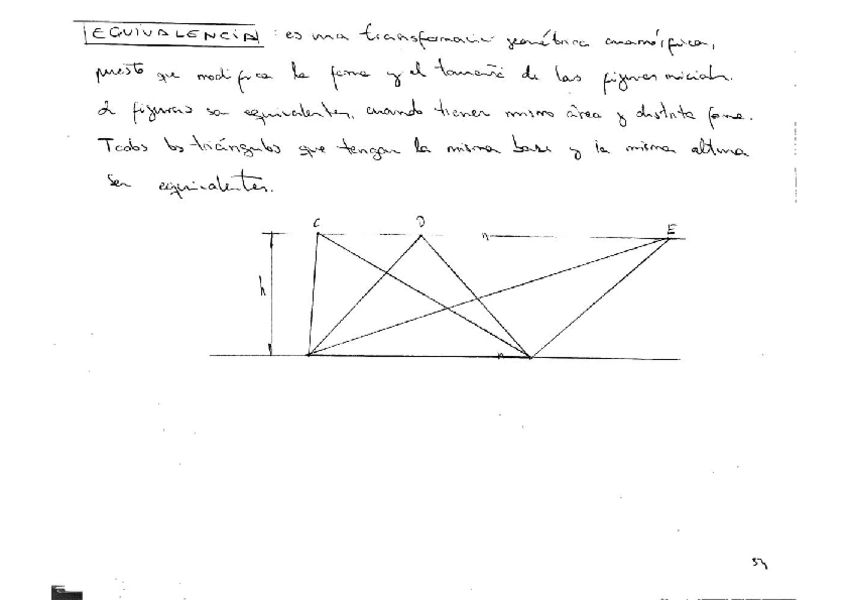 EQUIVALENCIA : es una transformación geométrica anamórfica,
puesto que modifica la forma y el tamaño de las figuras iniciales.
2 figuras son equivalentes, cuando tienen mismo área y distinta forma.
Todos los triángulos que tengan la misma base y la misma altura
son equivalentes.
C D E
n
h
n
54